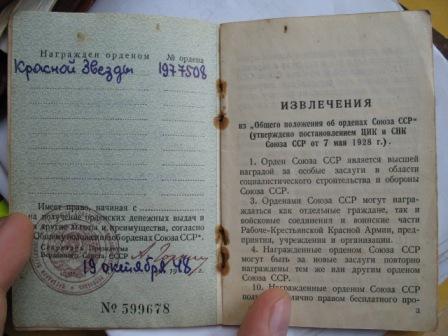 Награжден орденом № ордена
Красной Звезды 1977508
Имеет право, начиная с
на получение орденских денежных выдач и
на другие льготы и преимущества, согласно
„Общему положению об орденах Союза ССР“.
Секретарь Президиума
Верховного Совета СССР
19 октября 1948
№ 599678
ИЗВЛЕЧЕНИЯ
из „Общего положения об орденах Союза ССР“
(утверждено постановлением ЦИК и СНК
Союза ССР от 7 мая 1928 г.).
1. Орден Союза ССР является высшей
наградой за особые заслуги в области
социалистического строительства и обороны
Союза ССР.
3. Орденами Союза ССР могут на-
граждаться как отдельные граждане, так и
войсковые соединения и воинские части
Рабоче-Крестьянской Красной Армии, пред-
приятия, учреждения и организации.
4. Награжденные орденом Союза ССР
могут быть за новые заслуги повторно
награждены тем же или другим орденом
Союза ССР.
10. Награжденные орденом Союза ССР
лично правом бесплатного про-
3